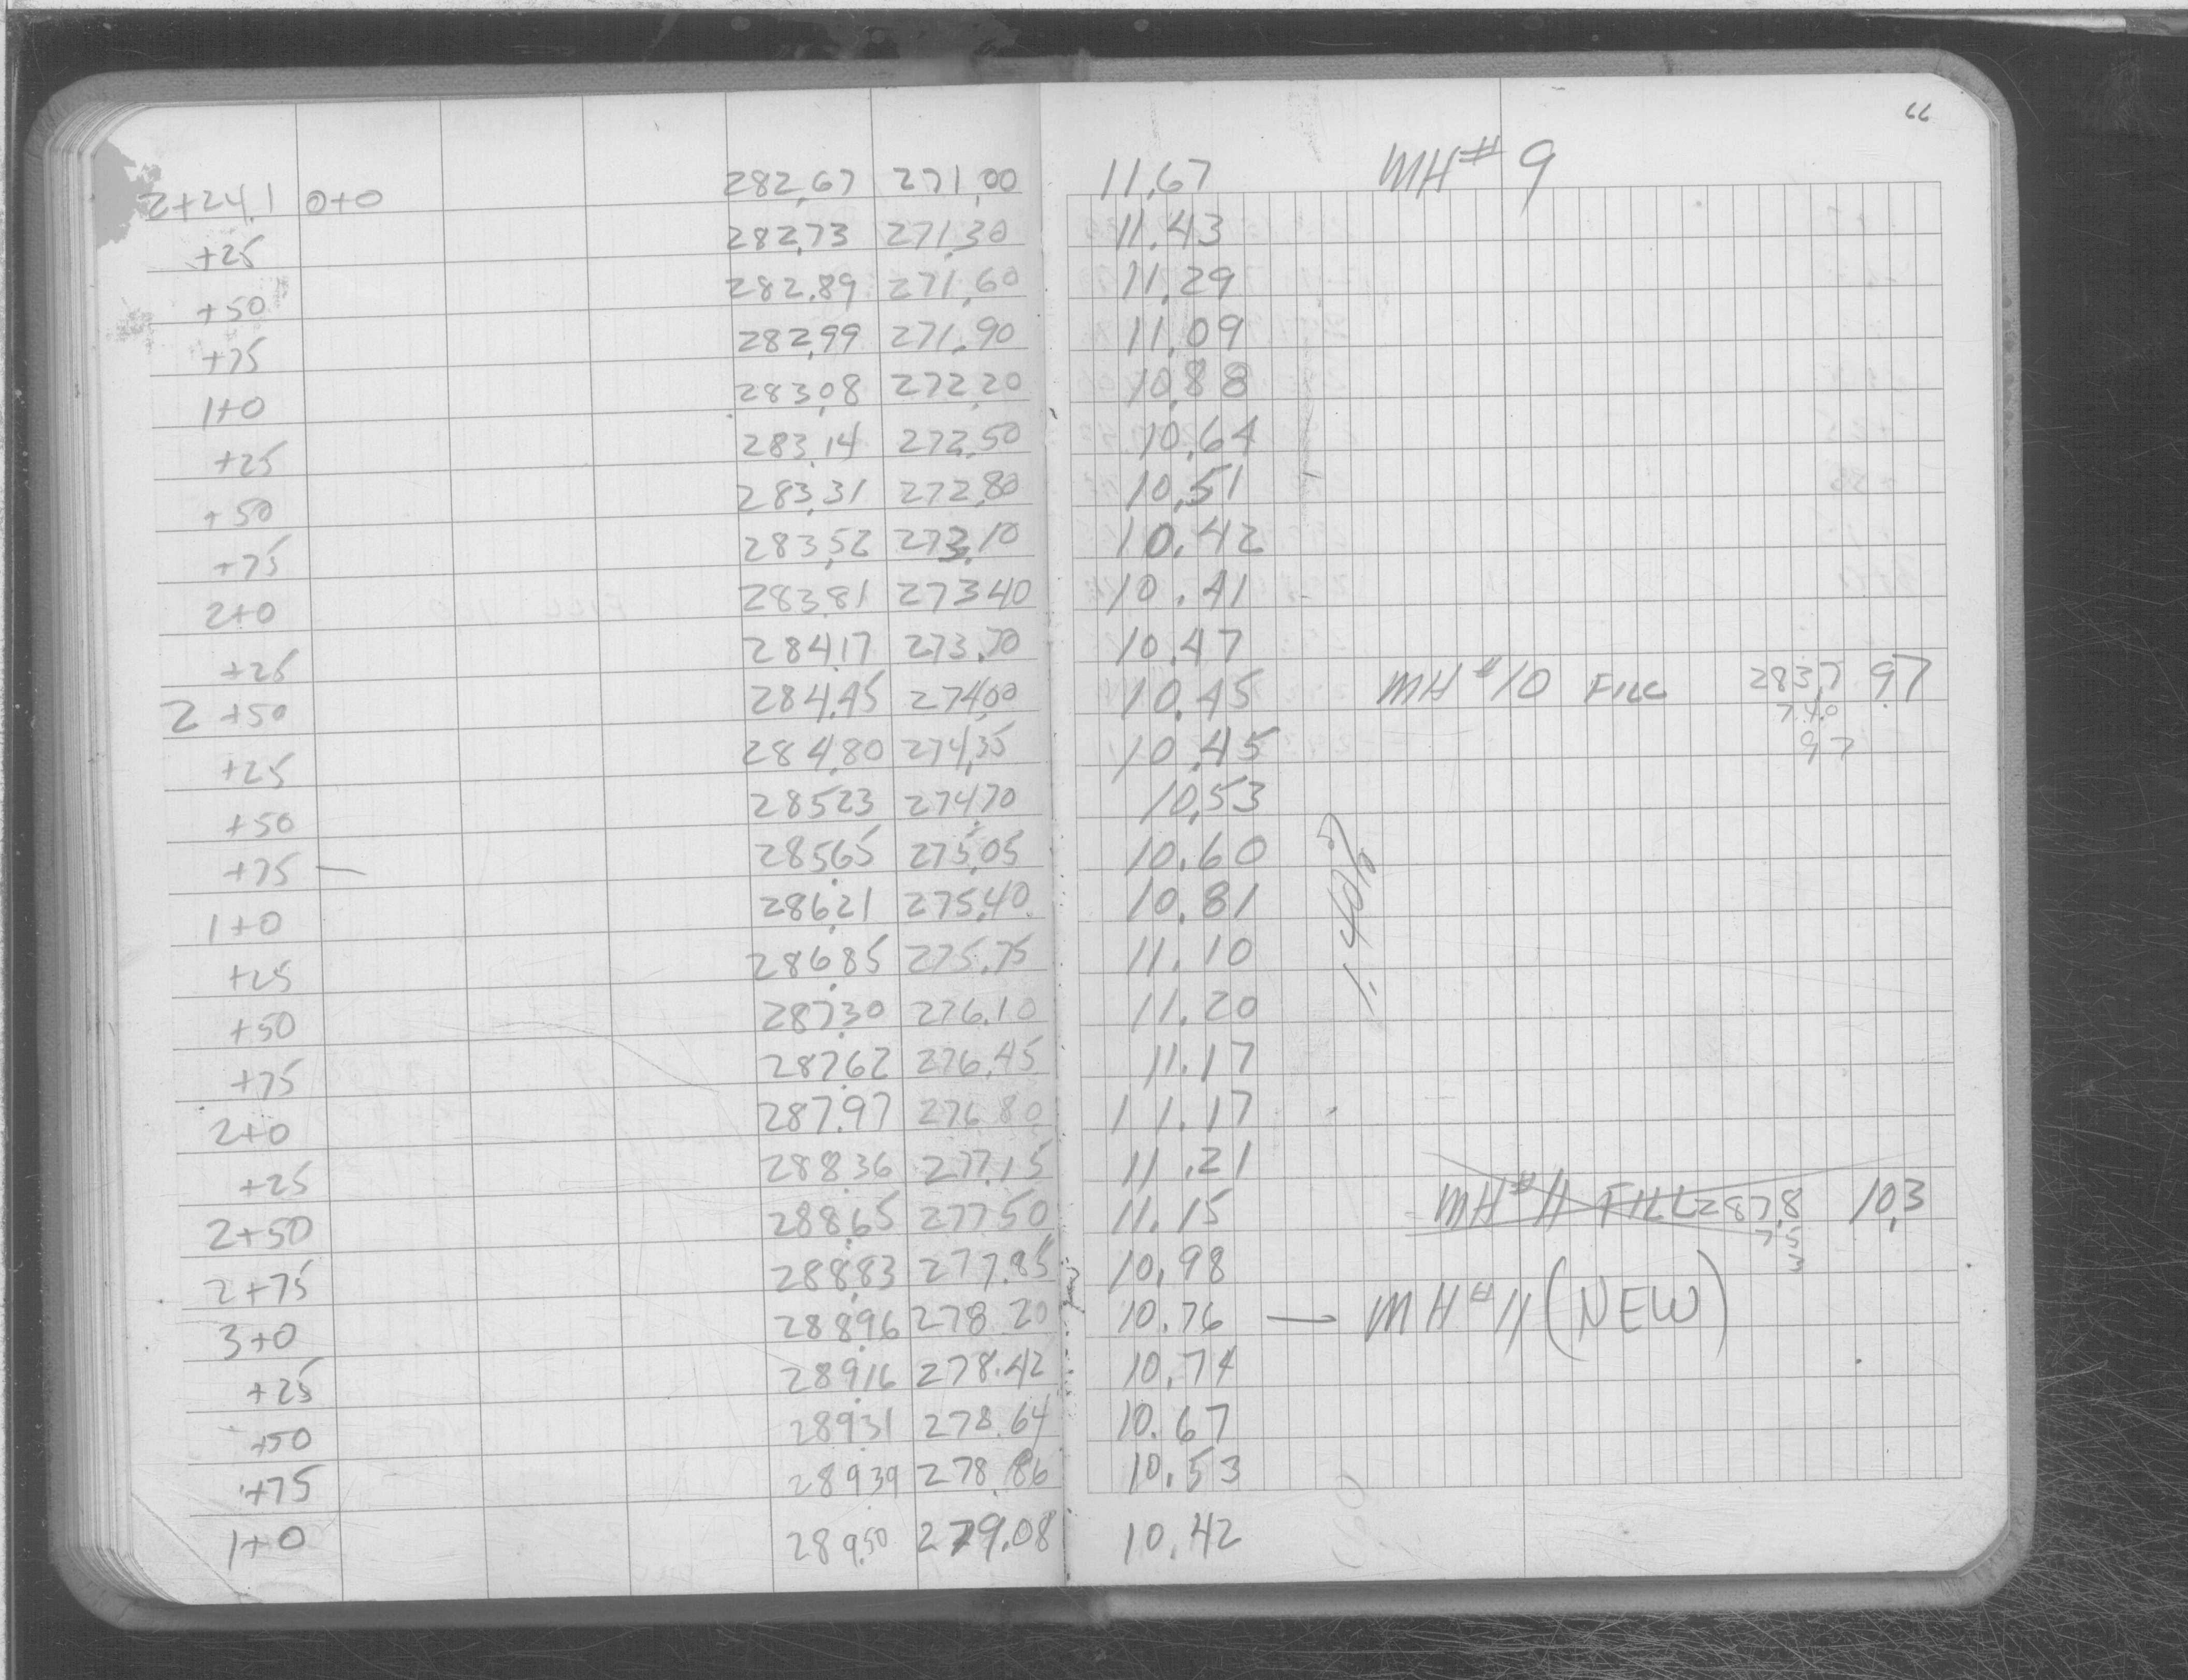 66
2+24.1 0+0 282.67 271.00 11.67 MH# 9
+25 282.73 271.30 11.43
+50 282.89 271.60 11.29
+75 282.99 271.90 11.09
1+0 283.08 272.20 10.88
+25 283.14 272.50 10.64
+50 283.31 272.80 10.51
+75 283.52 273.10 10.42
2+0 283.81 273.40 10.41
+25 284.17 273.70 10.47
2 +50 284.45 274.00 10.45 MH #10 FILL 283.7 9.7
74.0
+25 284.80 274.35 10.45 9.7
+50 285.23 274.70 10.53
+75 — 285.65 275.05 10.60
1+0 286.21 275.40 10.81
1.40%
+25 286.85 275.75 11.10
+50 287.30 276.10 11.20
+75 287.62 276.45 11.17
2+0 287.97 276.80 11.17
+25 288.36 277.15 11.21
2+50 288.65 277.50 11.15 MH #11 FILL 287.8 10.3
75
2+75 288.83 277.85 10.98
3+0 288.96 278.20 10.76 — MH #11 (NEW)
+25 289.16 278.42 10.74
+50 289.31 278.64 10.67
+75 289.39 278.86 10.53
1+0 289.50 279.08 10.42